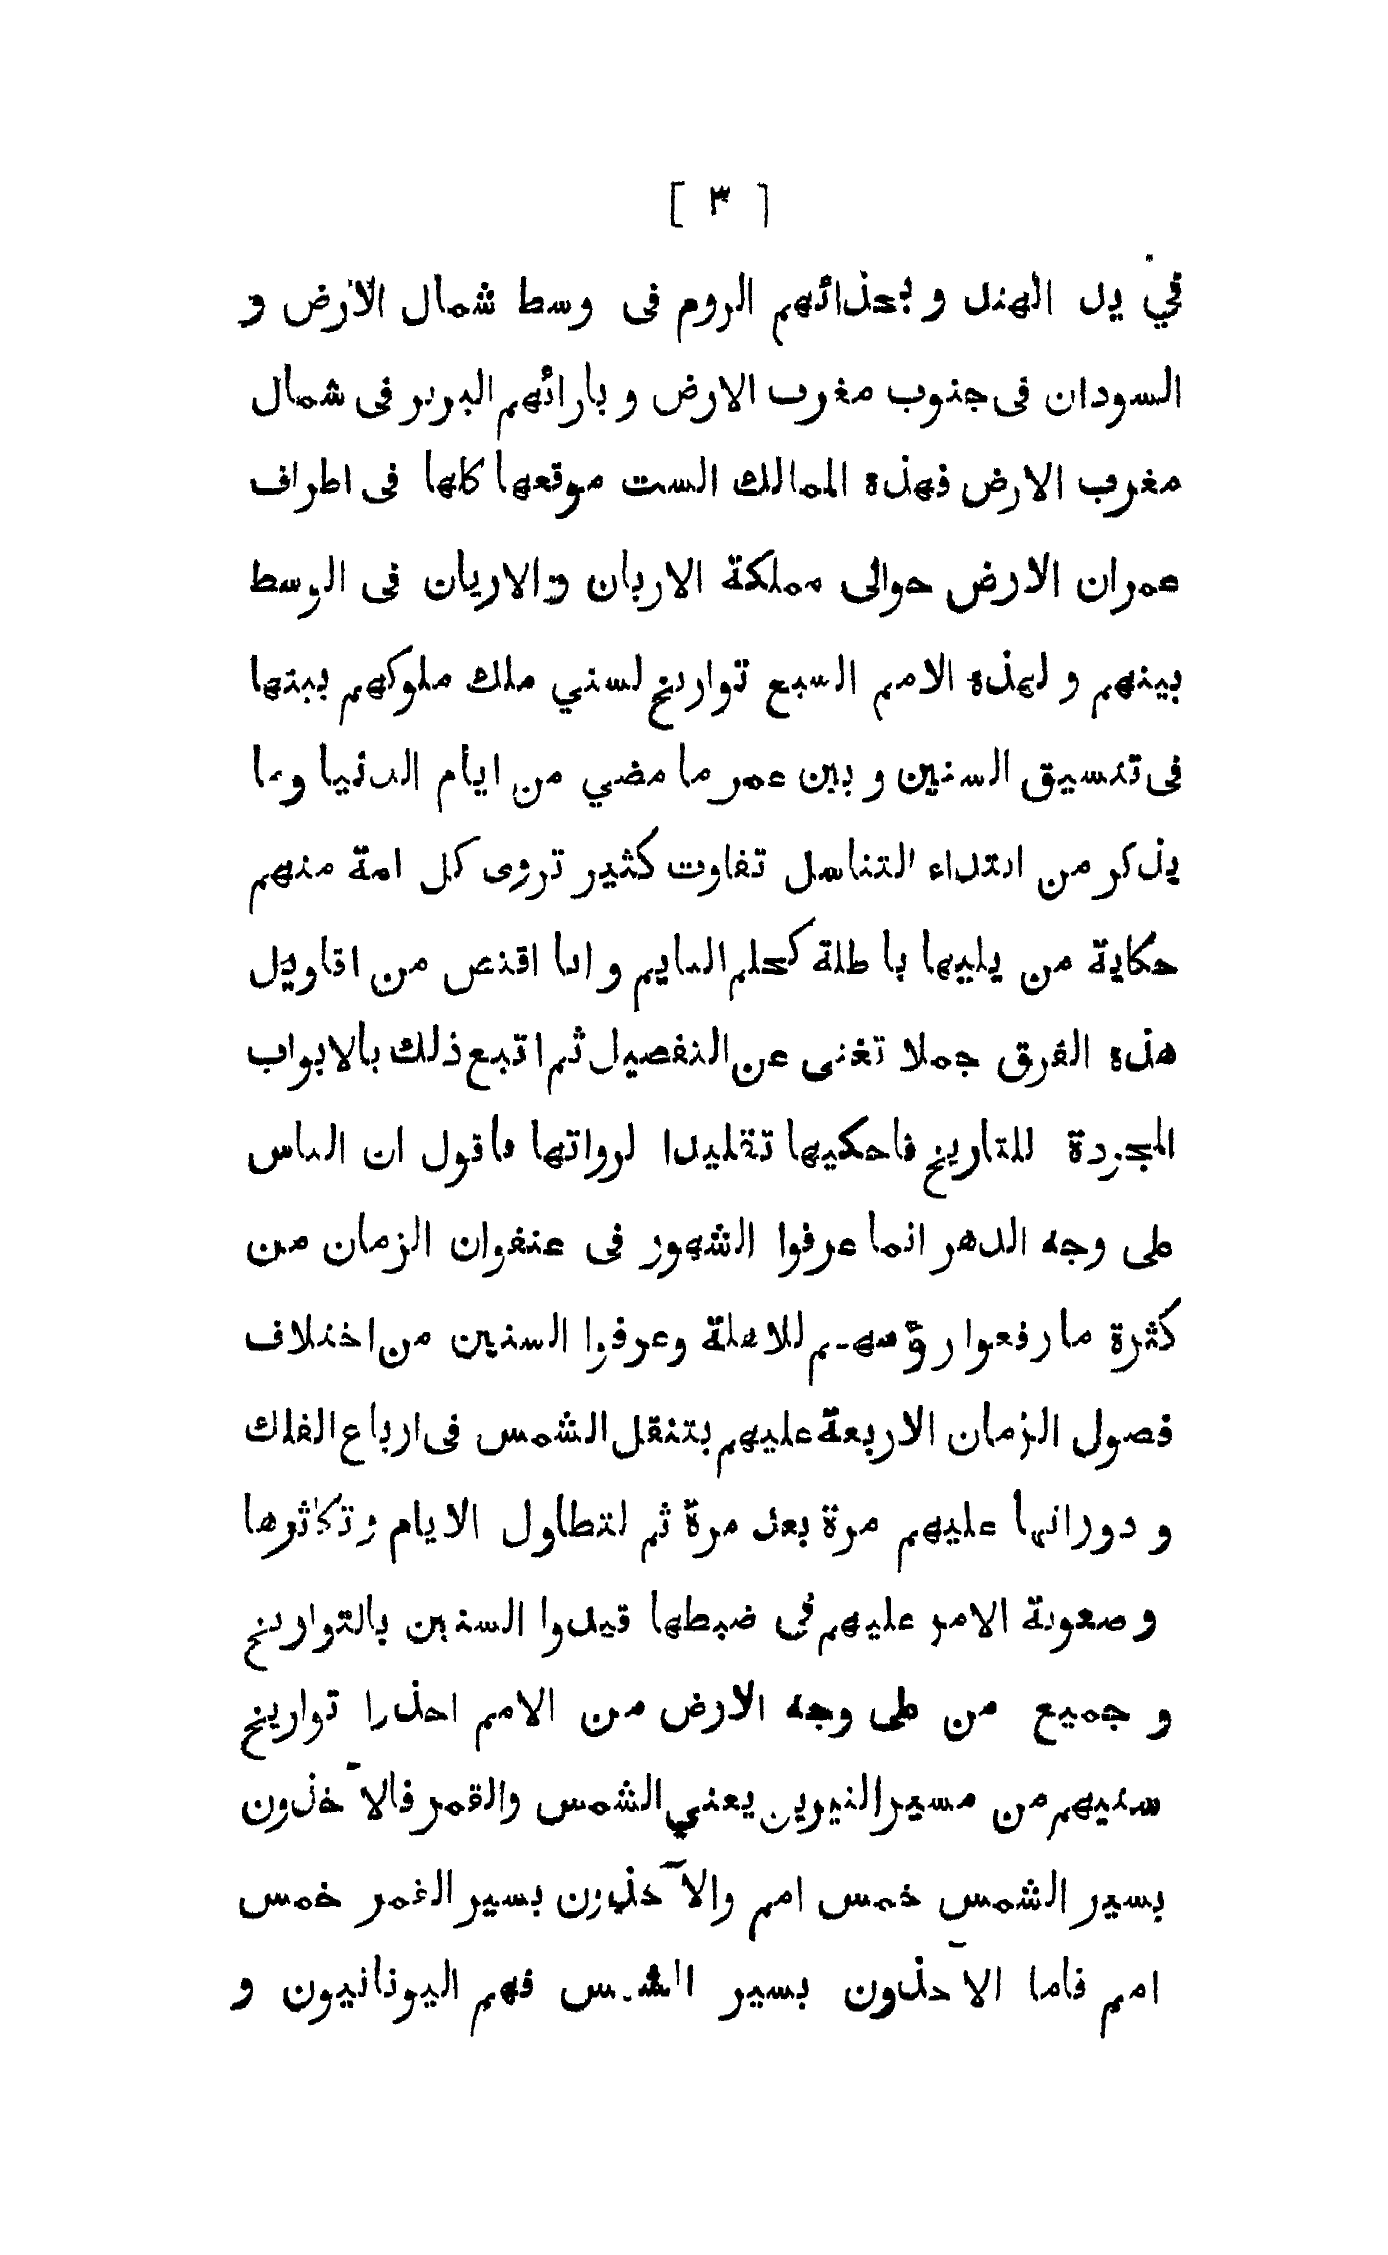 [ ٣ ]
في يد الهند و بحذائهم الروم فى وسط شمال الارض و
السودان فى جنوب مغرب الارض و بارائهم البربر فى شمال
مغرب الارض فهذه الممالك الست موقعها كلها فى اطراف
عمران الارض حوالى مملكة الاريان والاريان فى الوسط
بينهم و لهذه الامم السبع تواريخ لسني ملك ملوكهم بينها
فى تنسيق السنين و بين عمر ما مضي من ايام الدنيا وما
يذكر من ابتداء التناسل تفاوت كثير تروى كل امة منهم
حكاية من يليها باطلة كحلم النايم و انا اقتص من اقاويل
هذه الفرق جملا تغنى عن التفصيل ثم اتبع ذلك بالابواب
المجردة للتاريخ فاحكيها تقليدا لرواتها فاقول ان الناس
على وجه الدهر انما عرفوا الشهور فى عنفوان الزمان من
كثرة ما رفعوا رؤسهم للاهلة وعرفوا السنين من اختلاف
فصول الزمان الاربعة عليهم بتنقل الشمس فى ارباع الفلك
و دورانها عليهم مرة بعد مرة ثم لتطاول الايام و تكاثرها
و صعوبة الامر عليهم في ضبطها قيدوا السنين بالتواريخ
و جميع من على وجه الارض من الامم اخذوا تواريخ
سنيهم من مسير النيرين يعني الشمس والقمر فالآخذون
بسير الشمس خمس امم والآخذون بسير القمر خمس
امم فاما الآخذون بسير الشمس فهم اليونانيون و